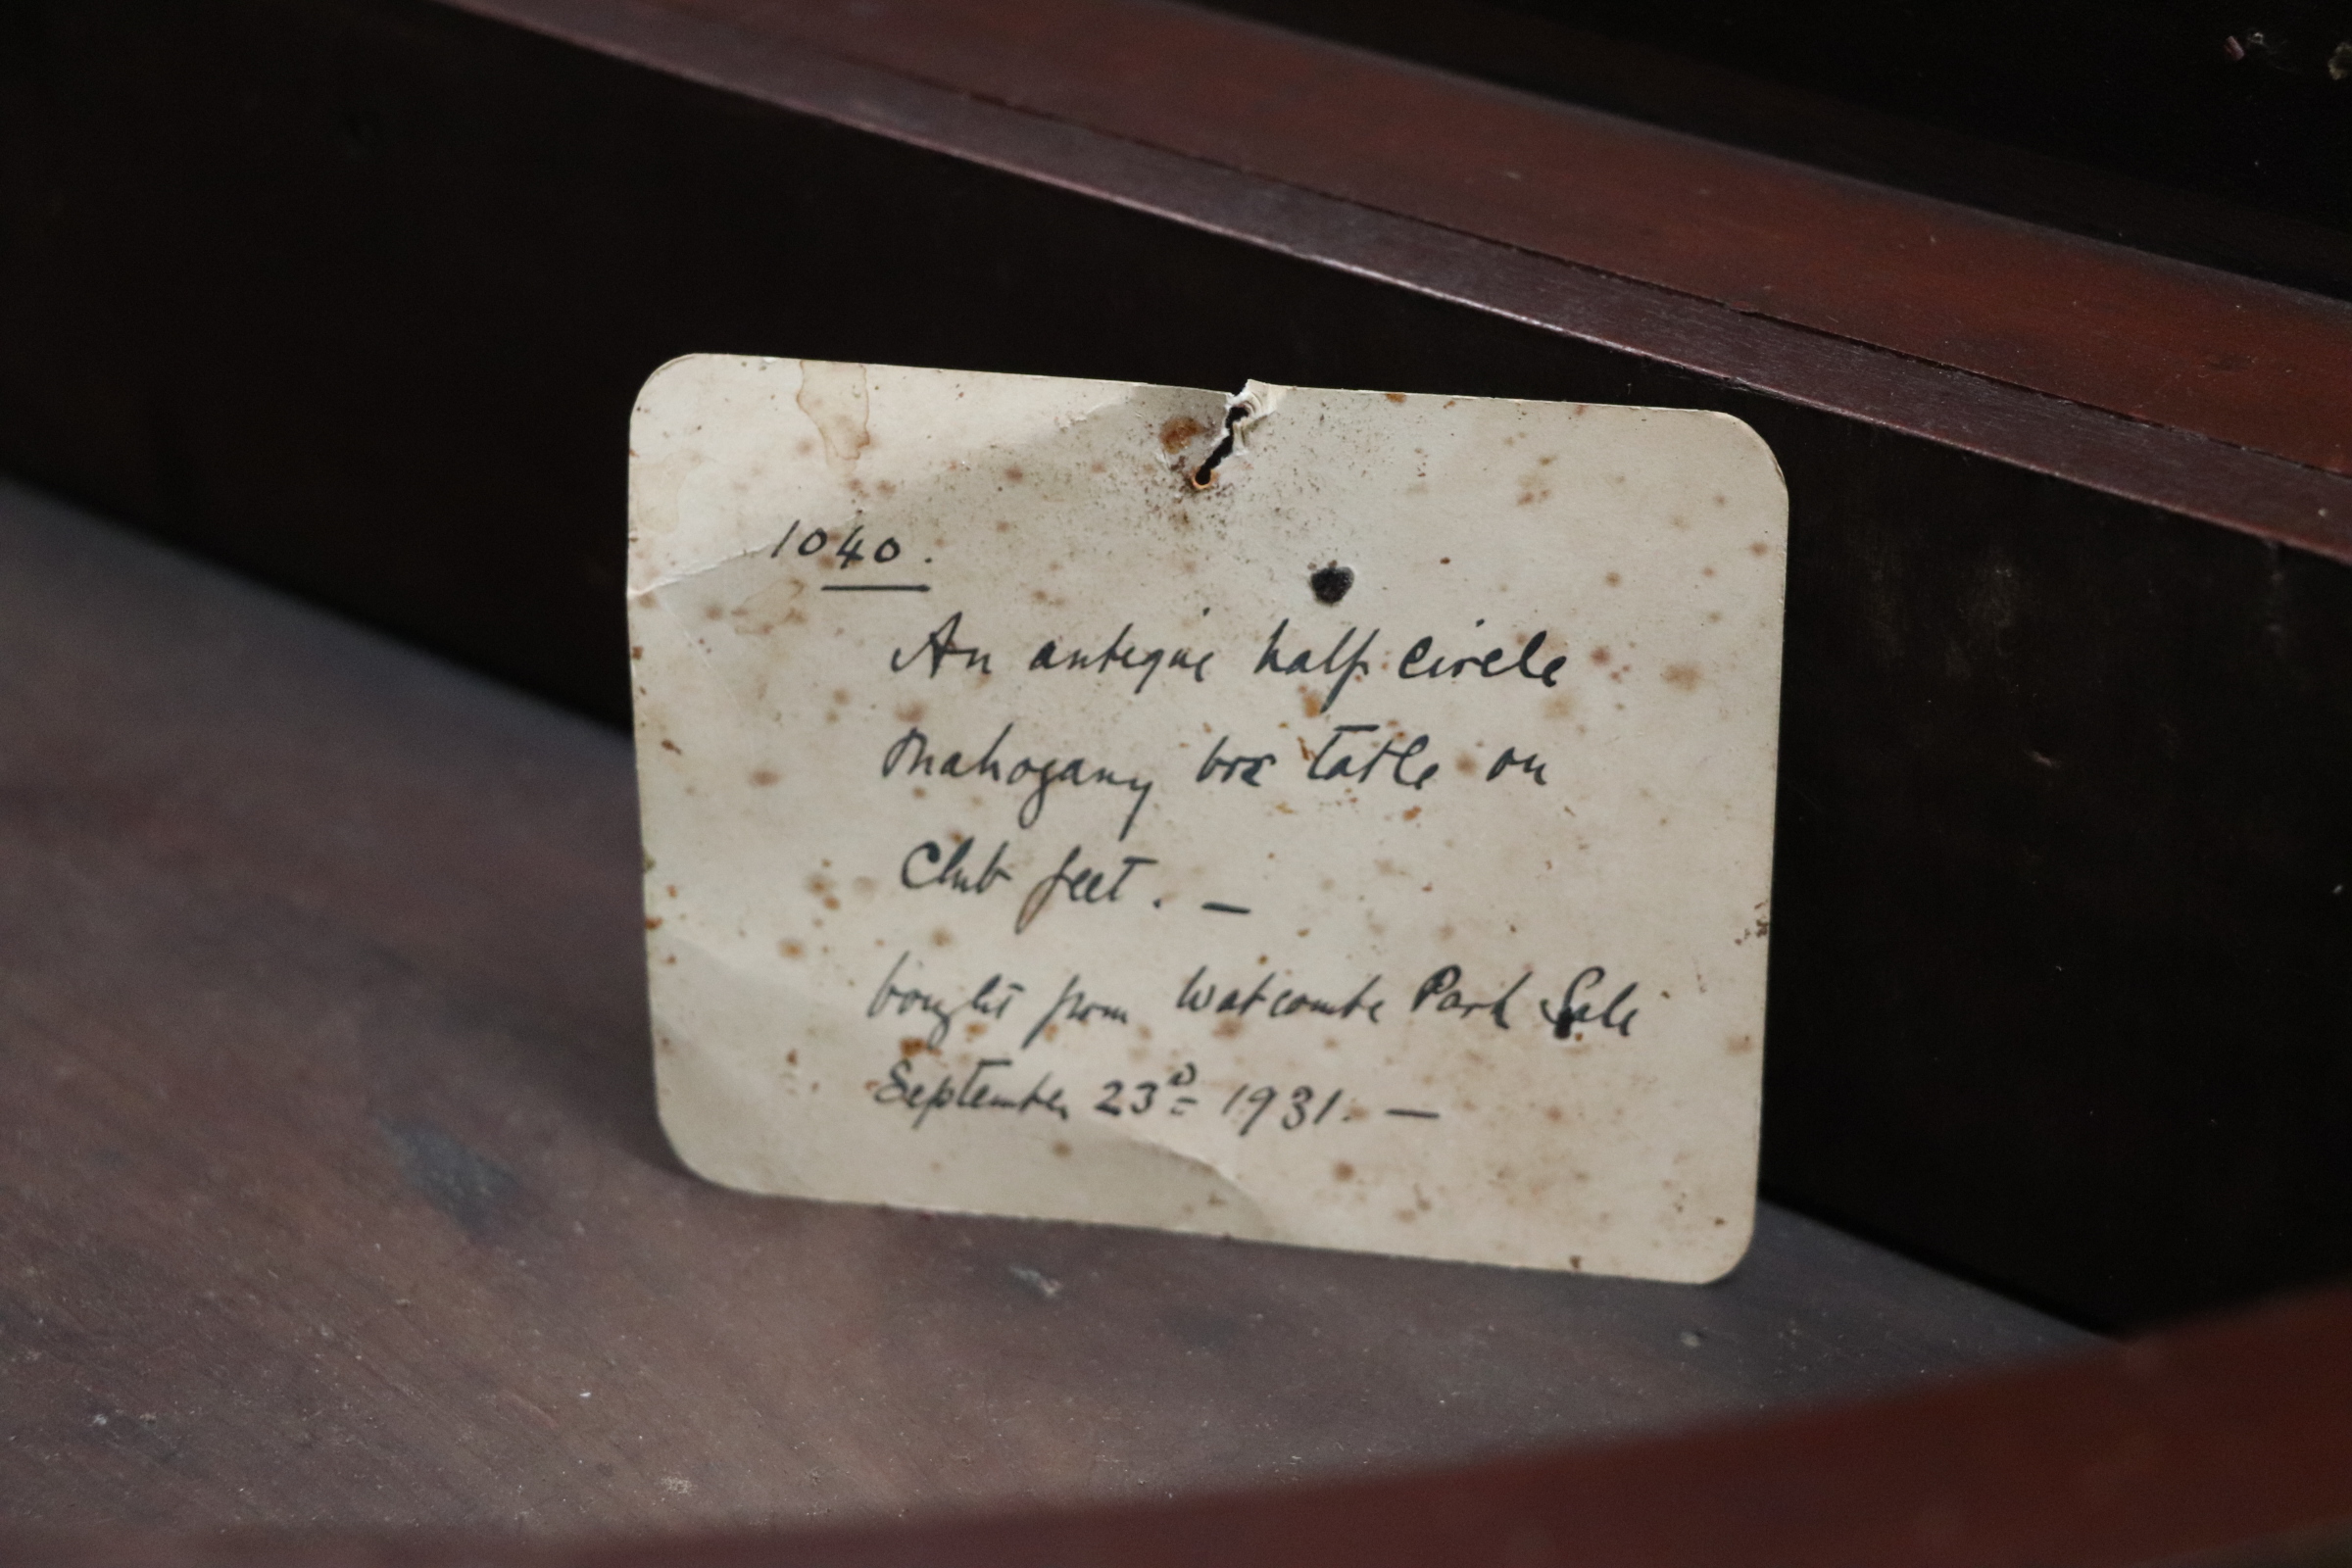 1040.
An antique half circle
Mahogany box table on
Club feet. —
bought from Watcombe Park Sale
September 23rd 1931. —